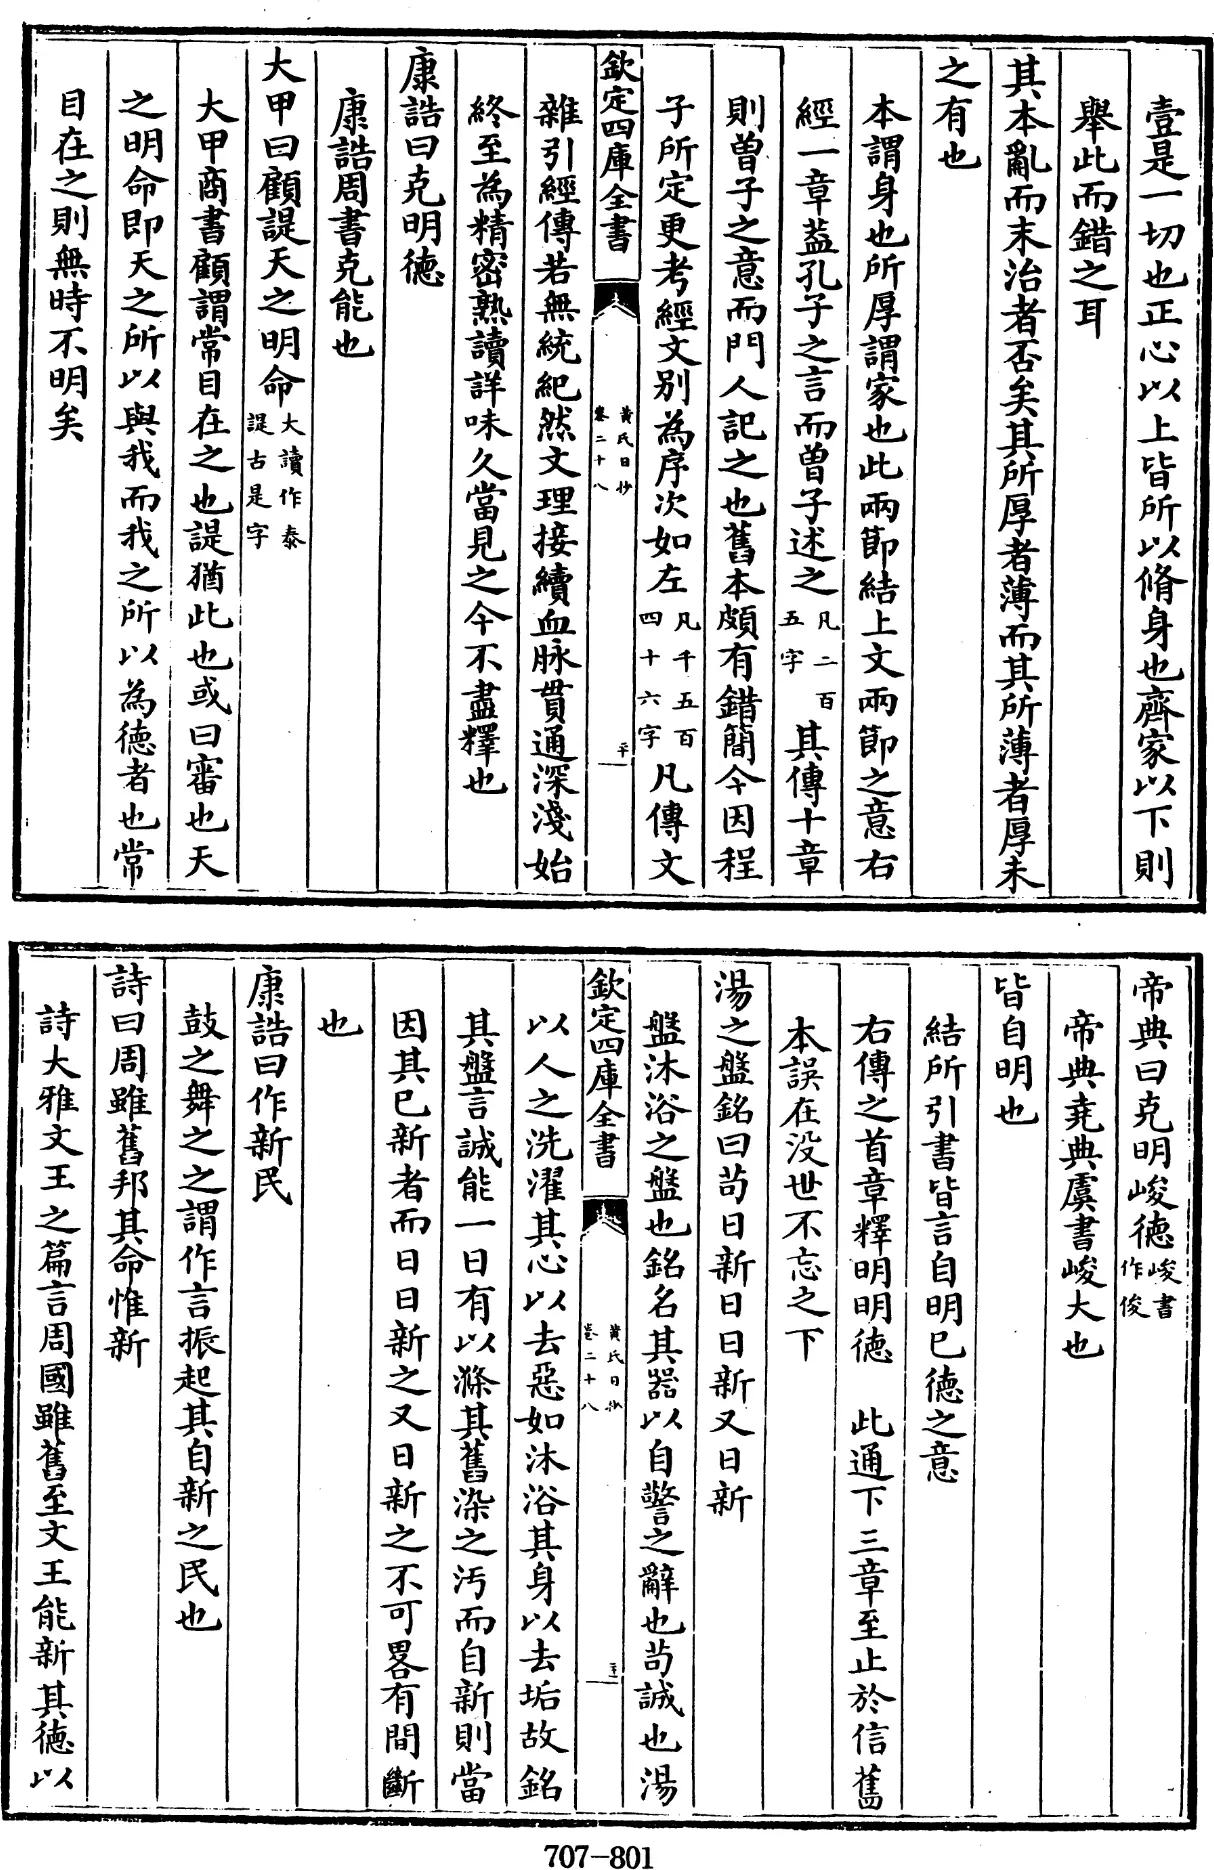 壹是一切也正心以上皆所以脩身也齊家以下則
舉此而錯之耳
其本亂而末治者否矣其所厚者薄而其所薄者厚未
之有也
本謂身也所厚謂家也此兩節結上文兩節之意右
經一章葢孔子之言而曾子述之凡二百五字其傳十章
則曾子之意而門人記之也舊本頗有錯簡今因程
子所定更考經文别為序次如左凡千五百四十六字凡傳文
欽定四庫全書
黄氏日抄
卷二十八
平
雜引經傳若無統紀然文理接續血脉貫通深淺始
終至為精密熟讀詳味久當見之今不盡釋也
康誥曰克明德
康誥周書克能也
大甲曰顧諟天之明命大讀作泰諟古是字
大甲商書顧謂常目在之也諟猶此也或曰審也天
之明命即天之所以與我而我之所以為德者也常
目在之則無時不明矣
帝典曰克明峻德峻書作俊
帝典堯典虞書峻大也
皆自明也
結所引書皆言自明已德之意
右傳之首章釋明明德 此通下三章至止於信舊
本誤在没世不忘之下
湯之盤銘曰茍日新日日新又日新
盤沐浴之盤也銘名其器以自警之辭也茍誠也湯
欽定四庫全書
黄氏日抄
卷二十八
以人之洗濯其心以去惡如沐浴其身以去垢故銘
其盤言誠能一日有以滌其舊染之汚而自新則當
因其已新者而日日新之又日新之不可畧有間斷
也
康誥曰作新民
鼓之舞之之謂作言振起其自新之民也
詩曰周雖舊邦其命惟新
詩大雅文王之篇言周國雖舊至文王能新其德以
707-801